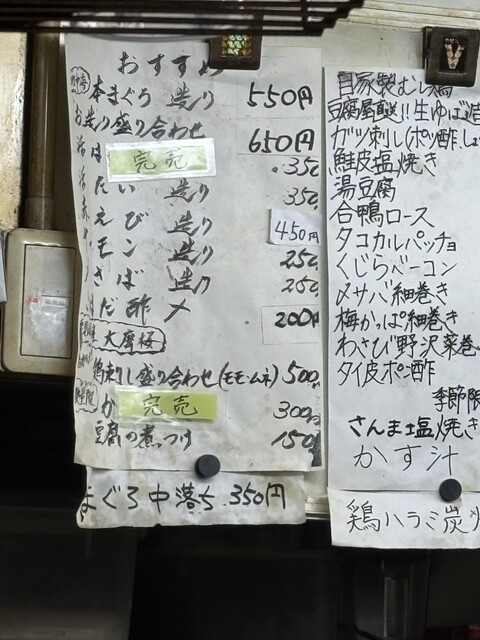 おすすめ
本まぐろ 造り 550円
お造り盛り合わせ 650円
は 完売 350
たい 造り 350
えび 造り 450円
モン 造り 250
さば 造り 250
だ酢〆 200円
大席梅
鶏刺し盛り合わせ(モモ・ムネ) 500円
か 完売 300円
豆腐の煮つけ 150円
まぐろ中落ち 350円
自家製むし鶏
豆腐屋直送!!生ゆば造
ガツ刺し(ポン酢.しょ
鮭皮塩焼き
湯豆腐
合鴨ロース
タコカルパッチョ
くじらベーコン
〆サバ細巻き
梅かっぱ細巻き
わさび野沢菜巻
タイ皮ポン酢
季節限
さんま塩焼き
かす汁
鶏ハラミ炭火